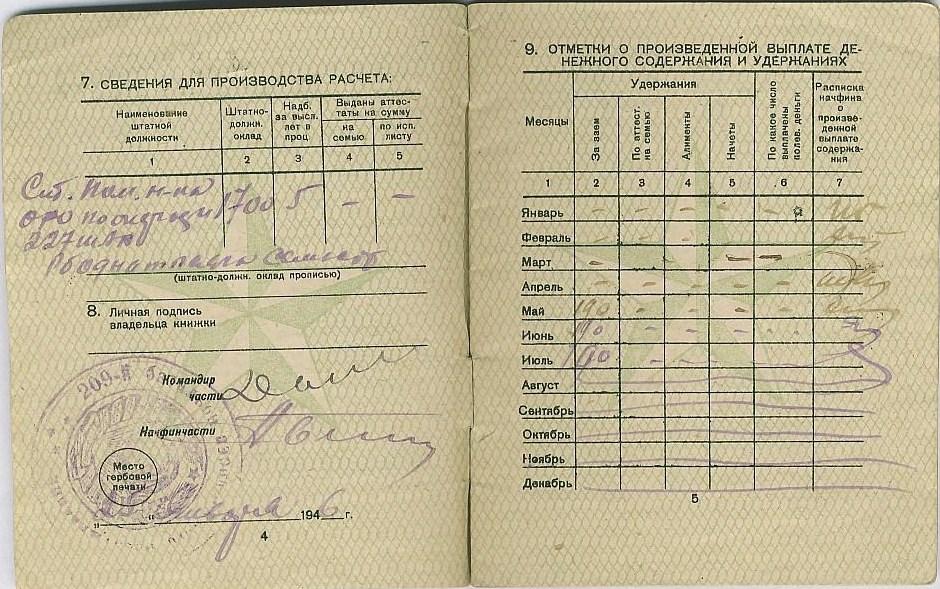 7. СВЕДЕНИЯ ДЛЯ ПРОИЗВОДСТВА РАСЧЕТА:
Наименование штатной должности
Штатно-должн. оклад
Надб. за высл. лет в проц.
Выданы аттестаты на сумму
на семью
по исп. листу
1 2 3 4 5
Ст. Пом. н-ка
1700 5 — —
(штатно-должн. оклад прописью)
8. Личная подпись
владельца книжки
Командир
части
Начфинчасти
209-й
Место
гербовой
печати
" " января 1946 г.
4
9. ОТМЕТКИ О ПРОИЗВЕДЕННОЙ ВЫПЛАТЕ ДЕ-
НЕЖНОГО СОДЕРЖАНИЯ И УДЕРЖАНИЯХ
Месяцы
Удержания
За заем
По аттест. на семью
Алименты
Начеты
По какое число выплачены полев. деньги
Расписка начфина о произведенной выплате содержания
1 2 3 4 5 6 7
Январь
Февраль
Март
Апрель
Май 190
Июнь 190
Июль 190
Август
Сентябрь
Октябрь
Ноябрь
Декабрь
5